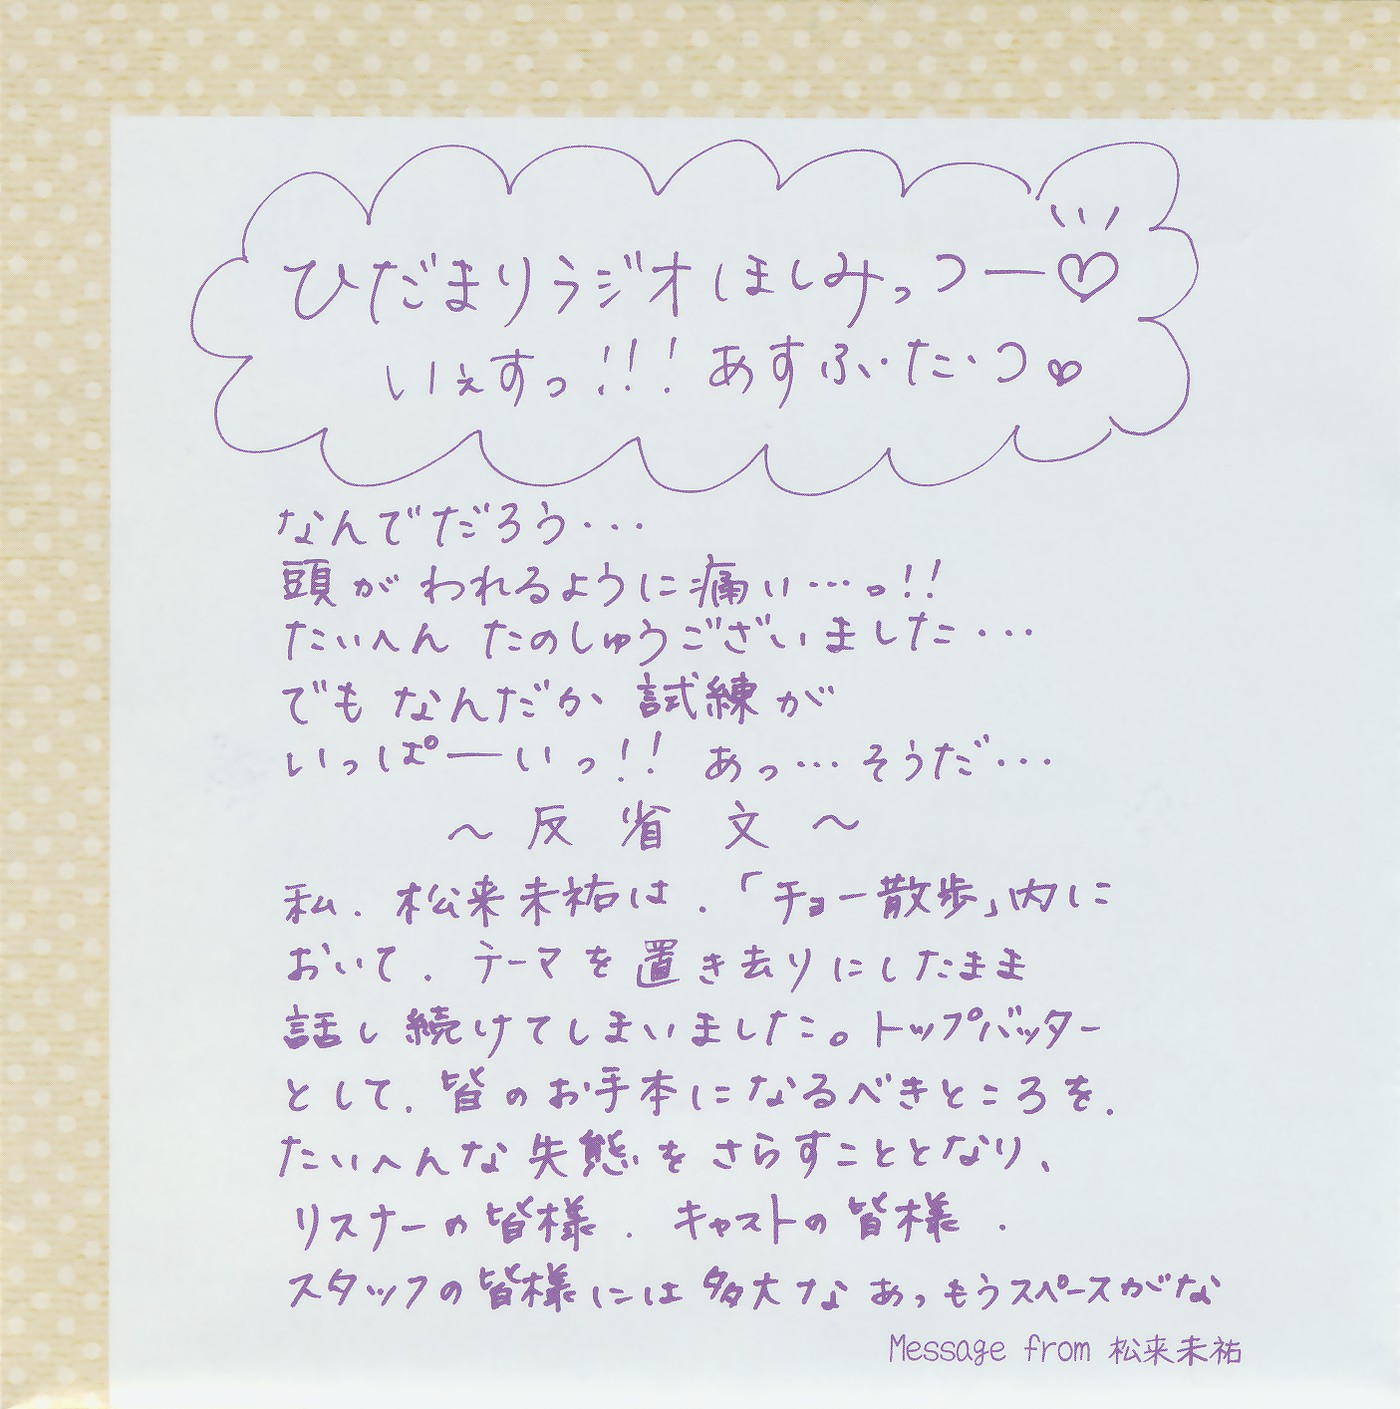 ひだまりラジオほしみっつー♡
いぇすっ!!! あすふぃたぃつ♡
なんでだろう・・・
頭がわれるように痛い…っ!!
たいへん たのしゅうございました・・・
でも なんだか 試練が
いっぱーいっ!! あっ…そうだ・・・
～反省文～
私、松来未祐は、「チョー散歩」内に
おいて、テーマを置き去りにしたまま
話し続けてしまいました。トップバッター
として、皆のお手本になるべきところを、
たいへんな失態をさらすこととなり、
リスナーの皆様、キャストの皆様、
スタッフの皆様には多大な あっもうスペースがな
Message from 松来未祐